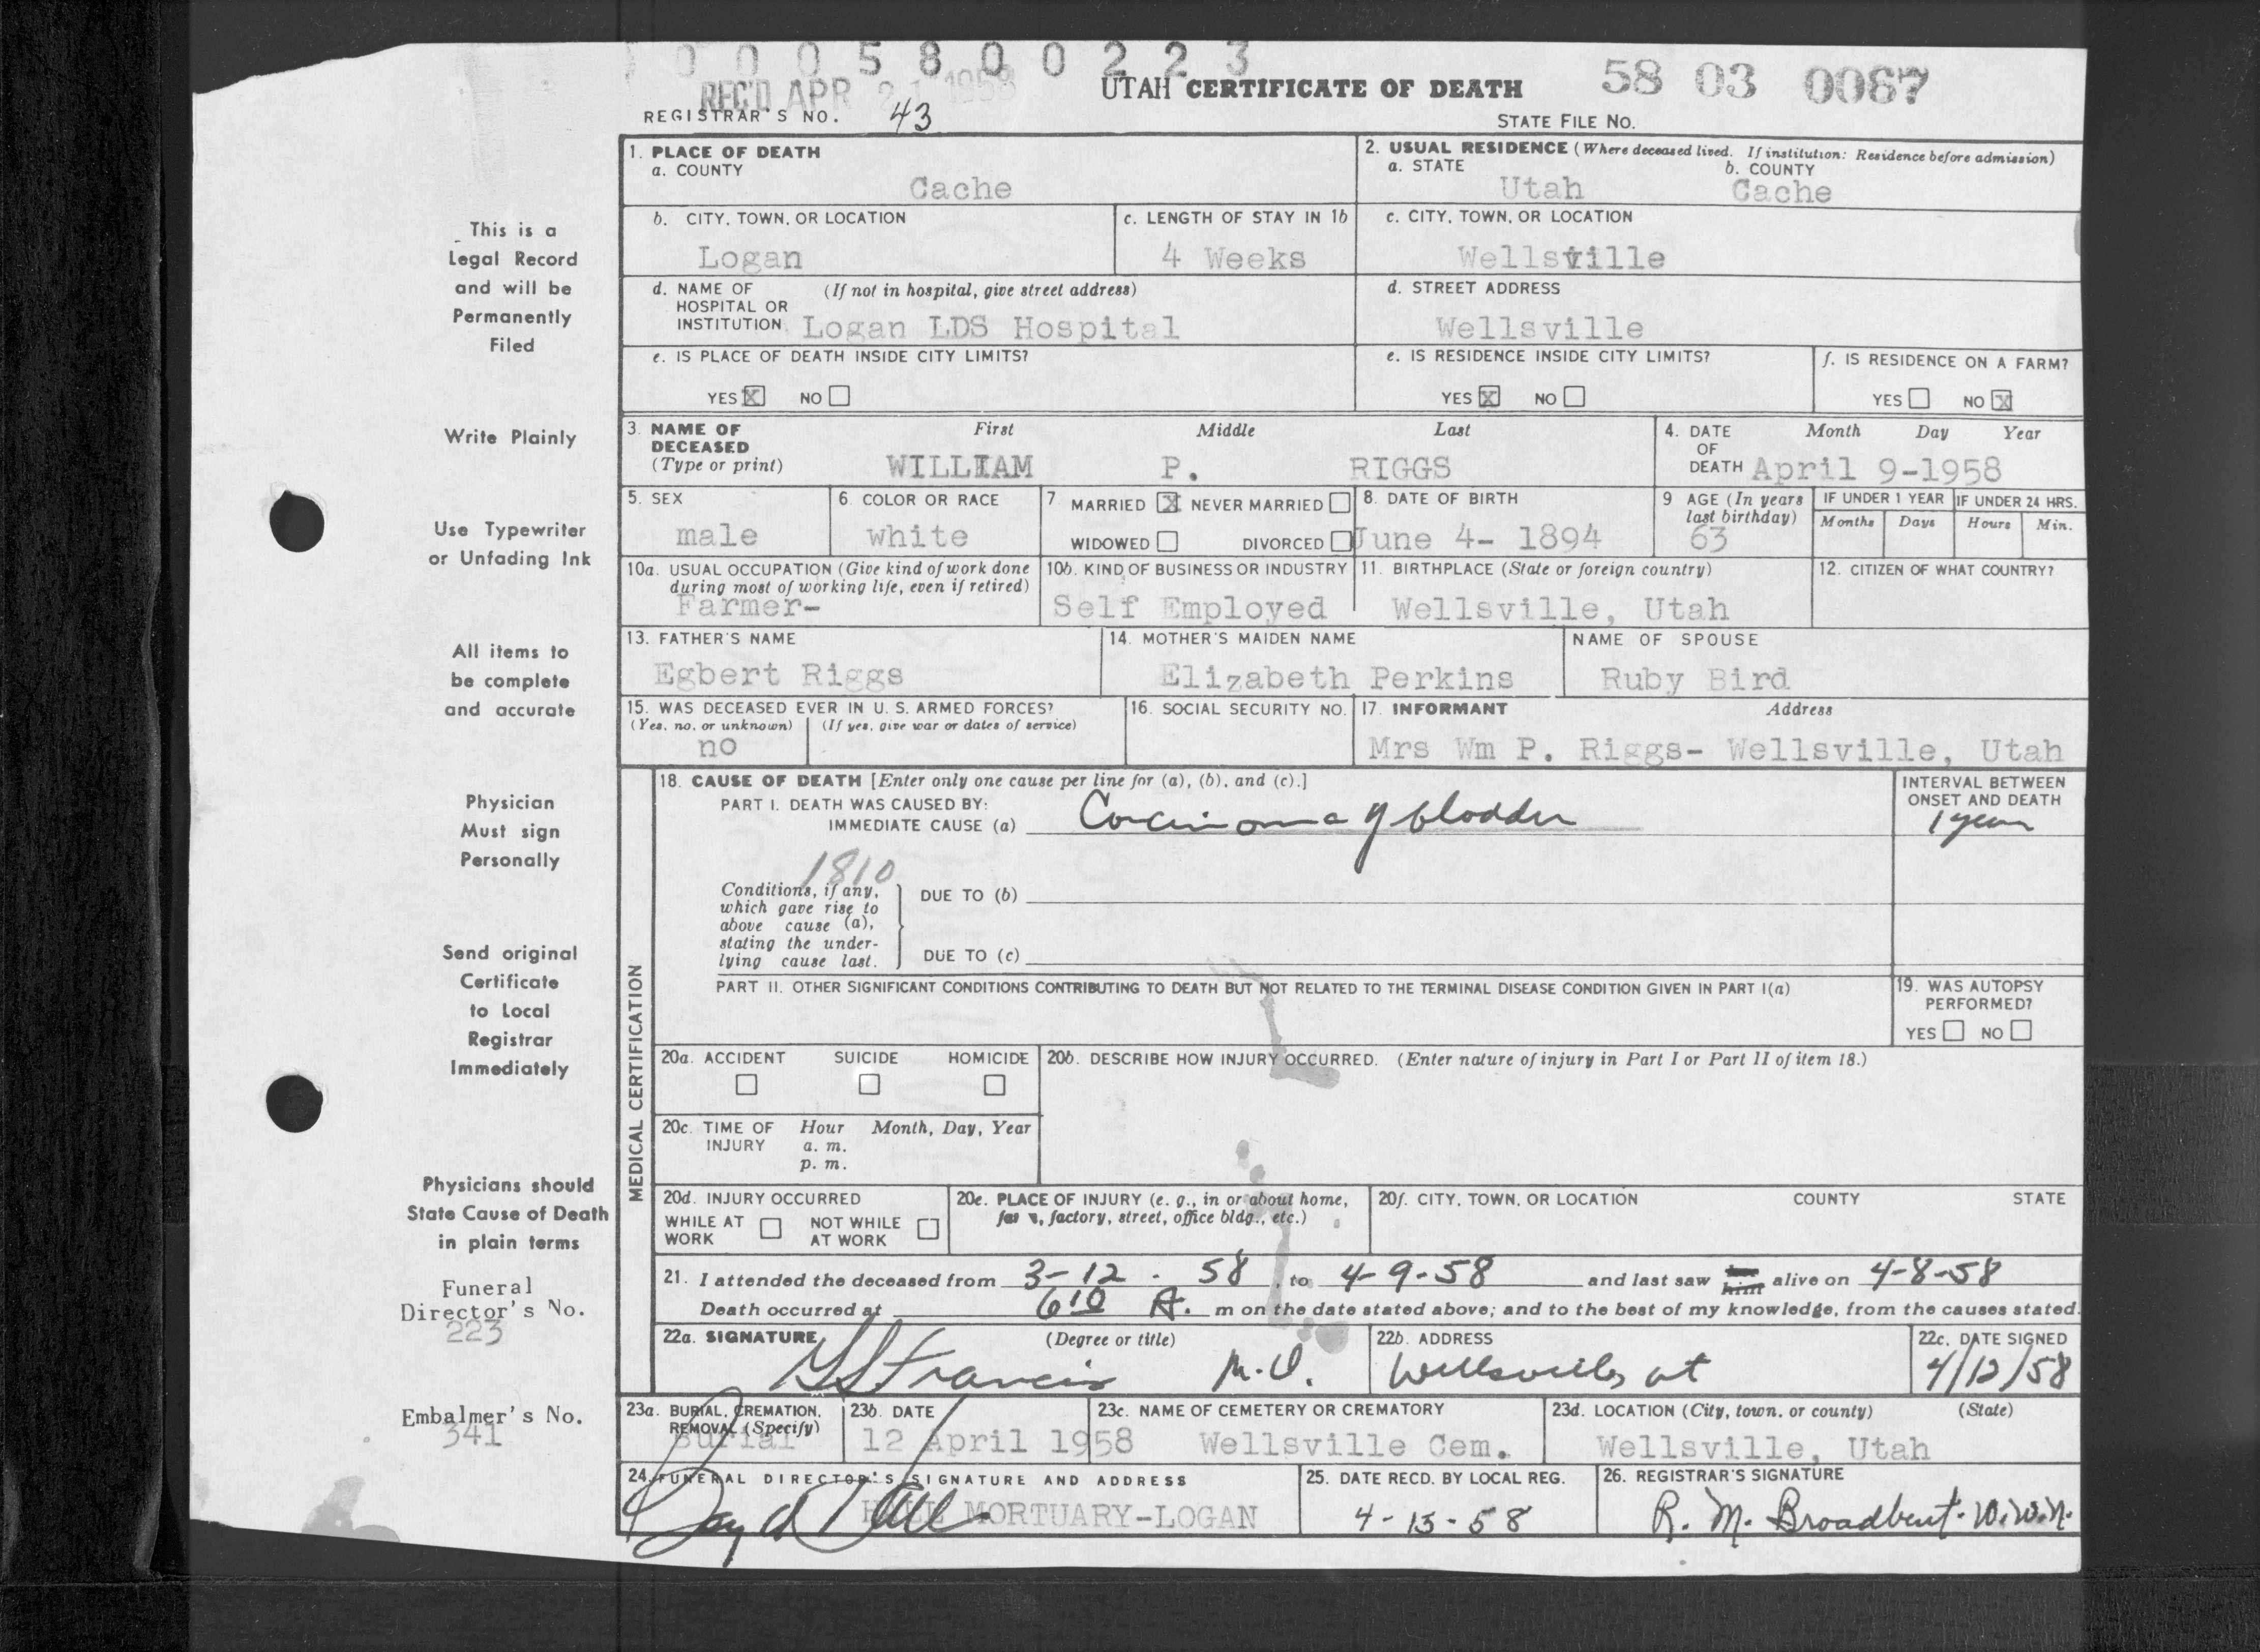 0005800223
REC'D APR 21 1958
UTAH CERTIFICATE OF DEATH
58 03 0067
REGISTRAR'S NO. 43
STATE FILE NO.
This is a
Legal Record
and will be
Permanently
Filed
Write Plainly
Use Typewriter
or Unfading Ink
All items to
be complete
and accurate
Physician
Must sign
Personally
Send original
Certificate
to Local
Registrar
Immediately
Physicians should
State Cause of Death
in plain terms
Funeral
Director's No.
223
Embalmer's No.
341
1. PLACE OF DEATH
a. COUNTY
Cache
2. USUAL RESIDENCE (Where deceased lived. If institution: Residence before admission)
a. STATE b. COUNTY
Utah Cache
b. CITY, TOWN, OR LOCATION
Logan
c. LENGTH OF STAY IN 1b
4 Weeks
c. CITY, TOWN, OR LOCATION
Wellsville
d. NAME OF (If not in hospital, give street address)
HOSPITAL OR
INSTITUTION Logan LDS Hospital
d. STREET ADDRESS
Wellsville
e. IS PLACE OF DEATH INSIDE CITY LIMITS?
YES X NO
e. IS RESIDENCE INSIDE CITY LIMITS?
YES X NO
f. IS RESIDENCE ON A FARM?
YES NO X
3. NAME OF First Middle Last
DECEASED
(Type or print) WILLIAM P. RIGGS
4. DATE Month Day Year
OF
DEATH April 9-1958
5. SEX
male
6. COLOR OR RACE
white
7 MARRIED X NEVER MARRIED
WIDOWED DIVORCED
8. DATE OF BIRTH
June 4- 1894
9 AGE (In years
last birthday)
63
IF UNDER 1 YEAR IF UNDER 24 HRS.
Months Days Hours Min.
10a. USUAL OCCUPATION (Give kind of work done
during most of working life, even if retired)
Farmer-
10b. KIND OF BUSINESS OR INDUSTRY
Self Employed
11. BIRTHPLACE (State or foreign country)
Wellsville, Utah
12. CITIZEN OF WHAT COUNTRY?
13. FATHER'S NAME
Egbert Riggs
14. MOTHER'S MAIDEN NAME
Elizabeth Perkins
NAME OF SPOUSE
Ruby Bird
15. WAS DECEASED EVER IN U. S. ARMED FORCES?
(Yes, no, or unknown) (If yes, give war or dates of service)
no
16. SOCIAL SECURITY NO.
17. INFORMANT Address
Mrs Wm P. Riggs- Wellsville, Utah
MEDICAL CERTIFICATION
18. CAUSE OF DEATH [Enter only one cause per line for (a), (b), and (c).]
PART I. DEATH WAS CAUSED BY:
IMMEDIATE CAUSE (a) Carcinoma of bladder
INTERVAL BETWEEN
ONSET AND DEATH
1 year
1810
Conditions, if any,
which gave rise to
above cause (a),
stating the under-
lying cause last.
DUE TO (b)
DUE TO (c)
PART II. OTHER SIGNIFICANT CONDITIONS CONTRIBUTING TO DEATH BUT NOT RELATED TO THE TERMINAL DISEASE CONDITION GIVEN IN PART I(a)
19. WAS AUTOPSY
PERFORMED?
YES NO
20a. ACCIDENT SUICIDE HOMICIDE
20b. DESCRIBE HOW INJURY OCCURRED. (Enter nature of injury in Part I or Part II of item 18.)
20c. TIME OF Hour Month, Day, Year
INJURY a. m.
p. m.
20d. INJURY OCCURRED
WHILE AT NOT WHILE
WORK AT WORK
20e. PLACE OF INJURY (e. g., in or about home,
farm, factory, street, office bldg., etc.)
20f. CITY, TOWN, OR LOCATION COUNTY STATE
21. I attended the deceased from 3-12-58, to 4-9-58 and last saw him alive on 4-8-58
Death occurred at 6 10 A. m on the date stated above; and to the best of my knowledge, from the causes stated.
22a. SIGNATURE (Degree or title)
Francis M.D.
22b. ADDRESS
Wellsville, ut
22c. DATE SIGNED
4/12/58
23a. BURIAL, CREMATION,
REMOVAL (Specify)
Burial
23b. DATE
12 April 1958
23c. NAME OF CEMETERY OR CREMATORY
Wellsville Cem.
23d. LOCATION (City, town, or county) (State)
Wellsville, Utah
24. FUNERAL DIRECTOR'S SIGNATURE AND ADDRESS
HALL MORTUARY-LOGAN
25. DATE RECD. BY LOCAL REG.
4-15-58
26. REGISTRAR'S SIGNATURE
R. M. Broadbent